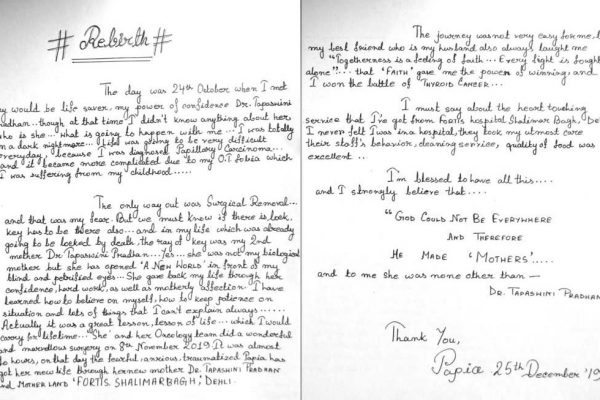 # Rebirth #
The day was 24th October when I met
y would be life saver, my power of confidence Dr. Tapaswini
radhan.. though at that time I didn't know anything about her
who is she... What is going to happen with me.... I was totally
in a dark nightmare... Life was going to be very difficult
everyday, because I was diagnosed Papillary Carcinoma...
and it became more complicated due to my O.T Fobia which
I was suffering from my childhood.....
The only way out was Surgical Removal...
and that was my fear. But we must know if there is lock,
key has to be there also... and in my life which was already
going to be locked by death, the ray of key was my 2nd
mother Dr Tapaswini Pradhan... Yes.. she was not my biological
mother but she has opened 'A New World' in front of my
blind and petrified eyes... She gave back my life through her
confidence, hard work, as well as motherly affection. I have
learned how to believe on myself, how to keep patience on
situation and lots of things that I can't explain always......
Actually it was a great lesson, lesson of life... which I would
carry for lifetime... She and her Oncology team did a wonderful
and marvellous surgery on 8th November 2019. It was almost
hours, on that day the fearful, anxious, traumatized Papia has
got her new life through her new mother Dr. Tapashini Pradhan
and Mother Land 'Fortis Shalimarbagh', Dehli.
The journey was not very easy for me, b
my best friend who is my husband also always taught me
"Togetherness is a feeling of faith... Every fight is fought
alone".... that 'Faith' gave me the power of winning, and
I won the battle of Thyroid Cancer...
I must say about the heart touching
service that I've got from Fortis hospital Shalimar Bagh, Del
I never felt I was in a hospital, they took my utmost care
their staff's behavior, cleaning service, quality of food was
excellent..
I'm blessed to have all this....
and I strongly believe that....
"God Could Not Be Everywhere
And Therefore
He Made 'Mothers'.....
and to me she was none other than —
Dr. Tapashini Pradhan
Thank You,
Papia 25th December '19